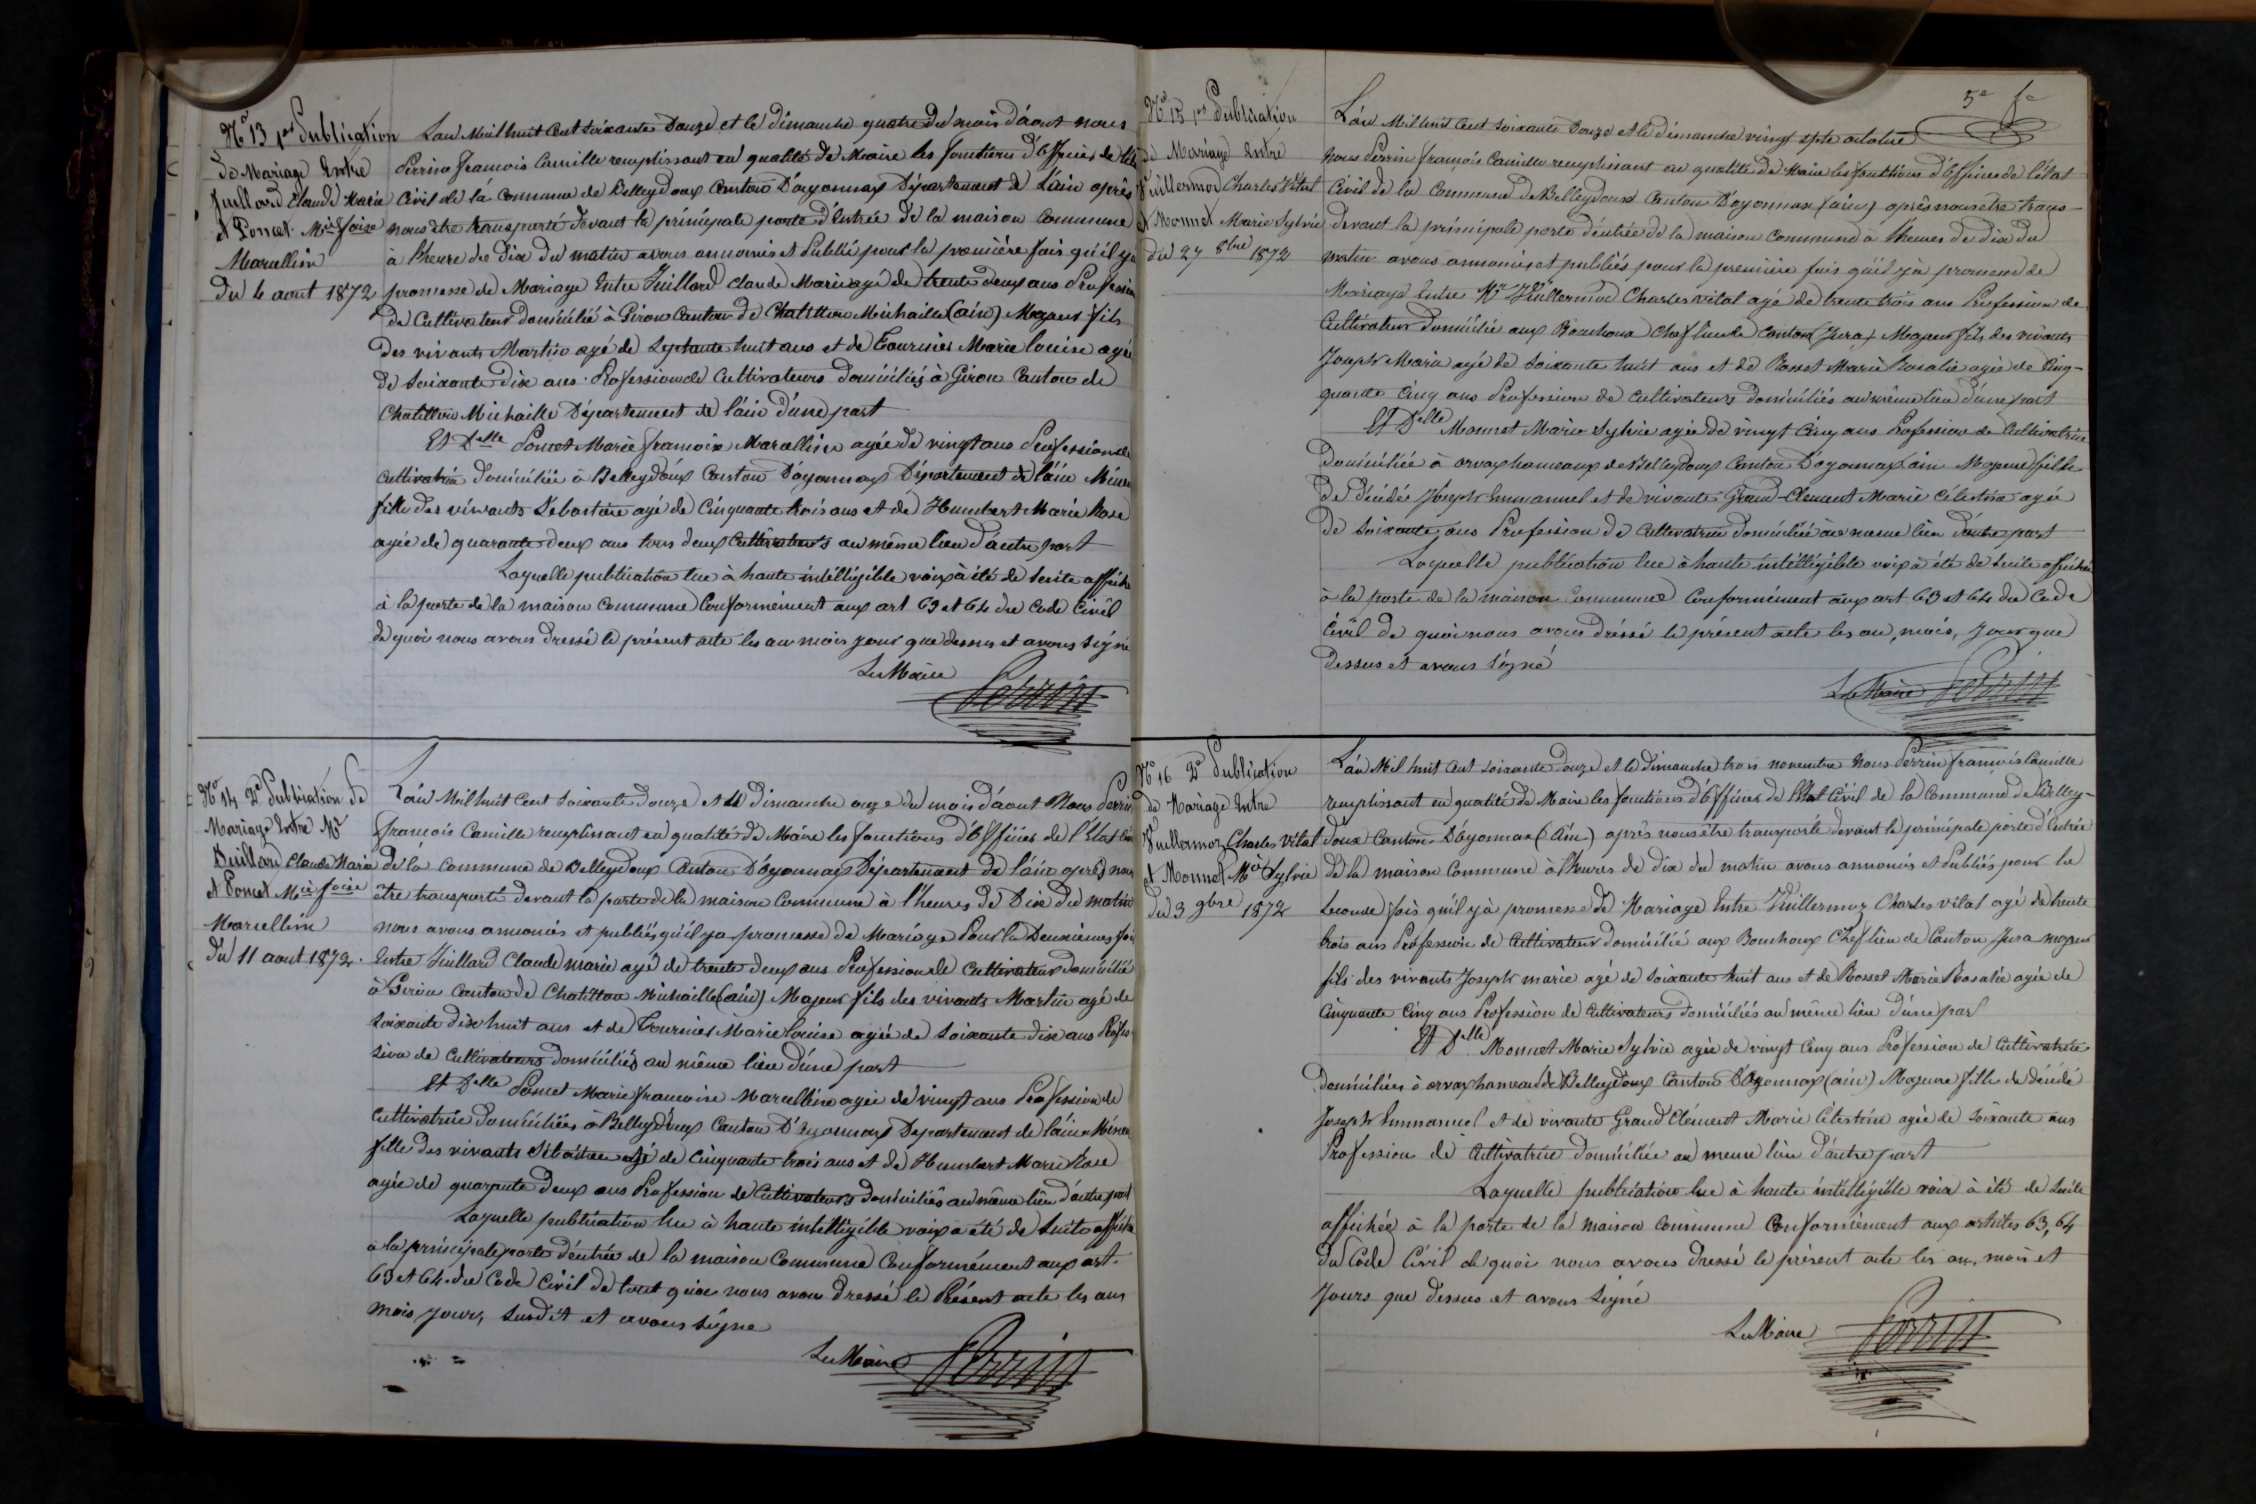 No 13 1re Publication
de Mariage Entre
Juillard Claude Marie
et Poncet Mie foise
Marcelline
Du 4 aout 1872
L'an Mil huit Cent soixante Douze et le dimanche quatre du mois d'aout nous
Perrin françois Camille remplissant en qualité de Maire les fonctions d'Officier de l'Etat
Civil de la Commune de Belleydoux Canton D'oyonnax Département de L'ain après
nous être transporté devant la principale porte d'Entrée de la maison Commune
à l'heure de dix du matin avons annoncés et Publiés pour la première fois qu'il y a
promesse de Mariage Entre Juillard Claude Marie agé de trente deux ans Profession
de Cultivateur domicilié à Giron Canton de Chatillon Michaille (ain) Majeur fils
Des vivants Martin agé de Septante huit ans et de Tournier Marie louise agée
de Soixante Dix ans Profession de Cultivateurs domiciliés à Giron Canton de
Chatillon Michaille Département de l'ain d'une part
Et Delle Poncet Marie françoise Marcelline agée de vingt ans Profession de
Cultivatrice domiciliée à Belleydoux Canton D'oyonnax Département de l'ain Mineure
fille des vivants Sébastien agé de Cinquante trois ans et de Humbert Marie Rose
agée de quarante deux ans tous deux Cultivateurs au même lieu d'autre part
Laquelle publication lue à haute intélligible voix à été de Suite affichée
à la porte de la maison Commune Conformément aux art 63 et 64 du Code Civil
de quoi nous avons dressé le présent acte les an mois jour que dessus et avons signé
Le Maire
Perrin
No 14 2e Publication de
Mariage Entre Mr
Juillard Claude Marie
et Poncet Mie foise
Marcelline
Du 11 aout 1872.
L'an Mil huit Cent Soixante Douze et le dimanche onze du mois d'aout Nous Perrin
françois Camille remplissant en qualité de Maire les fonctions d'Officier de l'Etat Civil
de la Commune de Belleydoux Canton D'oyonnax Département de l'ain après nous
être transporté devant la porte de la maison Commune à l'heures de Dix du matin
nous avons annoncés et publiés qu'il y a promesse de Mariage Pour la Deuxièmes fois
Entre Juillard Claude marie agé de trente deux ans Profession de Cultivateur domicilié
à Giron Canton de Chatillon Michaille (ain) Majeur fils des vivants Martin agé de
Soixante dix huit ans et de Tournier Marie louise agée de Soixante dix ans Profes-
sion de Cultivateurs domiciliés au même lieu d'une part
Et Delle Poncet Marie françoise Marcelline agée de vingt ans Profession de
Cultivatrice domiciliées à Belleydoux Canton D'oyonnax Département de l'ain Mineure
fille des vivants Sébastien agé de Cinquante trois ans et de Humbert Marie Rose
agée de quarante deux ans Profession de Cultivateurs domiciliés au même lieu d'autre part
Laquelle publication lue à haute intélligible voix a été de Suite affichée
à la principale porte d'entrée de la maison Commune Conformément aux art.
63 et 64 du Code Civil de tout quoi nous avons dressé le Présent acte les ans
mois jours, Susdit et avons signé
Le Maire
Perrin
No 15 1re Publication
de Mariage Entre
Vuillermoz Charles Vital
et Monnet Marie Sylvie
du 27 8bre 1872
5e f
L'an Mil huit Cent Soixante Douze et le dimanche vingt Sept octobre
nous Perrin françois Camille remplissant en qualité de Maire les fonctions d'Officier de l'état
Civil de la Commune de Belleydoux Canton D'oyonnax (ain) après nous être trans-
devant la principale porte d'entrée de la maison Commune à l'heures de dix du
matin avons annoncés et publiés pour la première fois qu'il y à promesse de
Mariage Entre Mr Vuillermoz Charles vital agé de trente trois ans Profession de
Cultivateur domicilié aux Bouchoux Chef lieu de Canton (Jura) Majeur fils des vivants
Joseph Marie agé de Soixante huit ans et de Rosset Marie Rosalie agée de Cinq-
quante Cinq ans Profession de Cultivateurs domiciliés au même lieu d'une part
Et Delle Monnet Marie Sylvie agée de vingt Cinq ans Profession de Cultivatrice
Domiciliée à orvaz hameaux de Belleydoux Canton D'oyonnax ain Majeure fille
De décédé Joseph Emmanuel et de vivante Grand-Clement Marie Célestine agée
de Soixante ans Profession de Cultivatrice domiciliée au meme lieu d'autre part
Laquelle publication lue à haute intélligible voix à été de Suite affichée
à la porte de la maison Commune Conformément aux art 63 et 64 du Code
Civil de quoi nous avons dréssé le présent acte les an, mois, Jour que
dessus et avons signé
Le Maire Perrin
No 16 2e Publication
de Mariage Entre
Vuillermoz Charles Vital
et Monnet Mie Sylvie
du 3 9bre 1872
L'an Mil huit Cent soixante Douze et le Dimanche trois novembre Nous Perrin françois Camille
remplissant en qualité de Maire les fonctions d'Officier de l'Etat Civil de la Commune de Belley-
doux Canton D'oyonnax (Ain) après nous être transporté devant la principale porte d'Entrée
de la maison Commune à l'heures de dix du matin avons annoncés et Publiés pour la
Seconde fois qu'il y à promesse de Mariage Entre Vuillermoz Charles vital agé de trente
trois ans Profession de Cultivateur domicilié aux Bouchoux Chef lieu de Canton Jura majeur
fils des vivants Joseph marie agé de Soixante huit ans et de Rosset Marie Rosalie agée de
Cinquante Cinq ans Profession de Cultivateurs domiciliés au même lieu d'une part
Et Delle Monnet Marie Sylvie agée de vingt Cinq ans Profession de Cultivatrice
domiciliées à orvaz hameau de Belleydoux Canton D'Oyonnax (ain) Majeure fille de décédé
Joseph Emmanuel et de vivante Grand Clément Marie Célestine agée de Soixante ans
Profession de Cultivatrice Domiciliée au meme lieu d'autre part
Laquelle publication lue à haute intelligible voix à été de Suite
affichée à la porte de la maison Commune Conformément aux articles 63, 64
du Code Civil de quoi nous avons dressé le présent acte les an, mois et
Jours que dessus et avons Signé
Le Maire Perrin